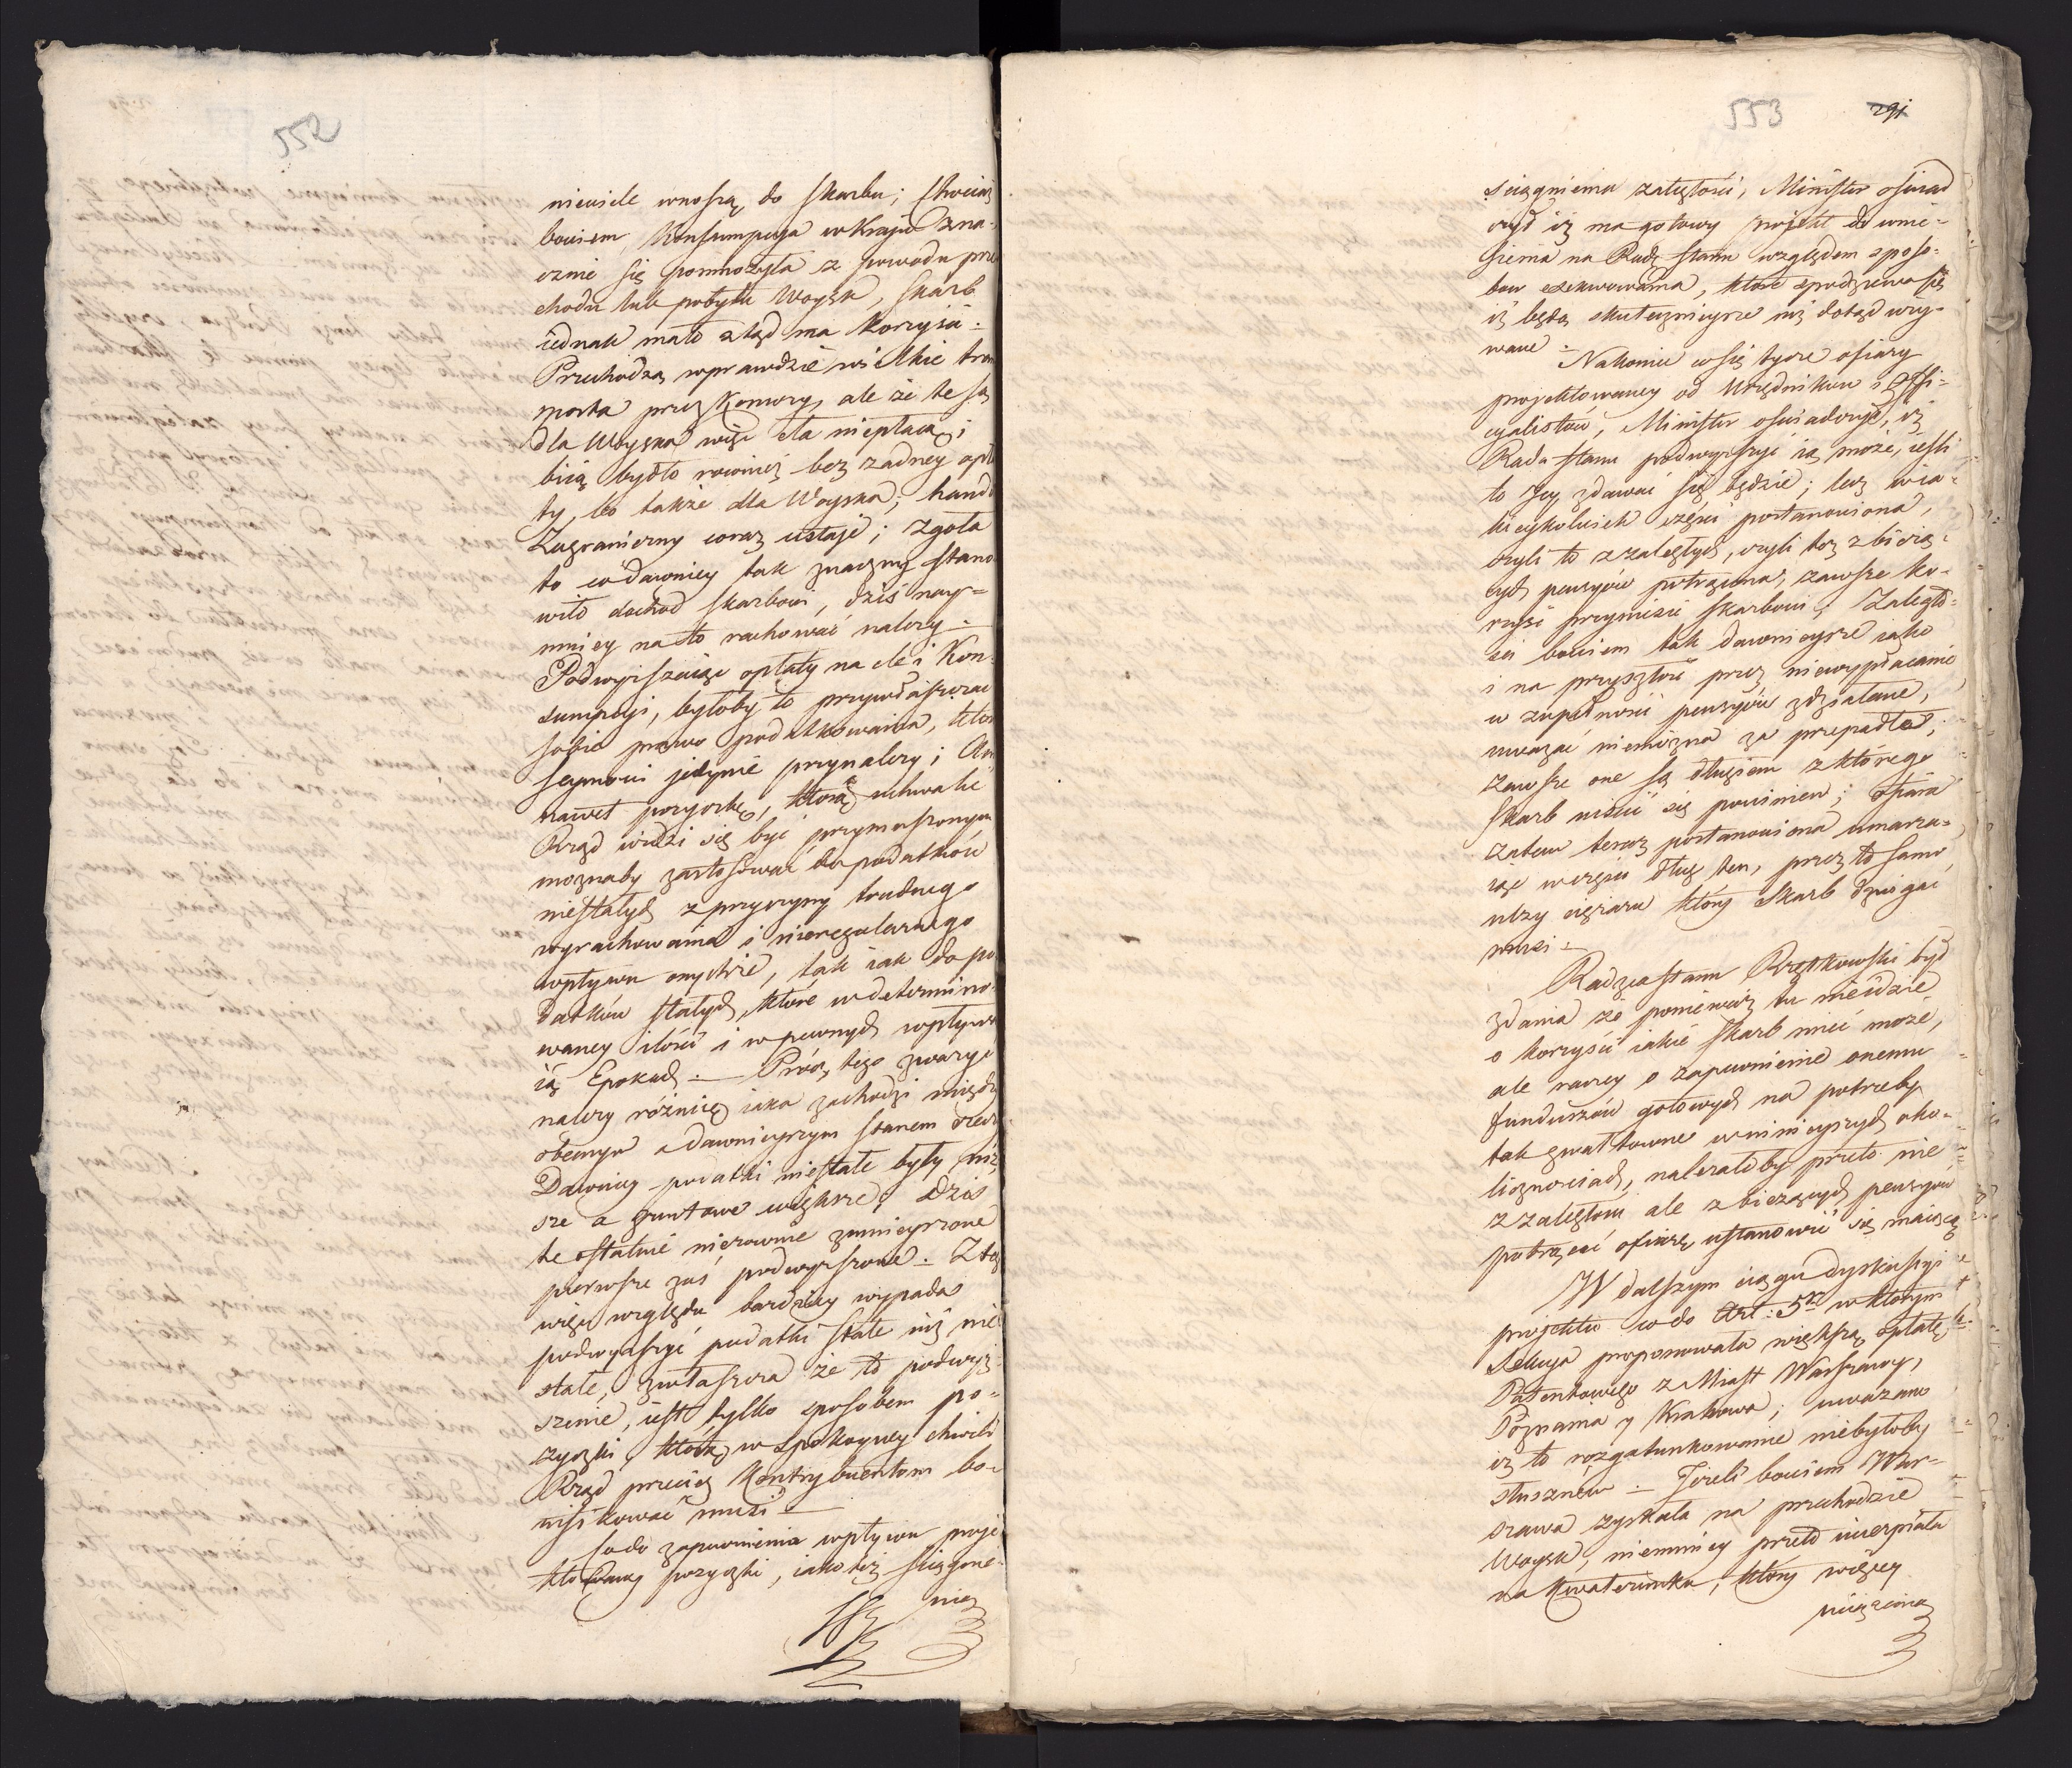 552
niewiele wnoszą do skarbu; chociaż
bowiem konsumpcya w kraju zna-
cznie się pomnożyła z powodu prze
chodu lub pobytu Woysk, skarb
iednak mało ztąd ma korzyści:
Przechodzą wprawdzie wielkie trans
porta przez komory, ale że te są
dla Woyska więc cła niepłacą;
biią bydło rownież bez żadney opła
ty, bo także dla Woyska; handel
Zagraniczny coraz ustaje; zgoła
to co dawniey tak znaczny stano
wiło dochod skarbowi, dziś nay=
mniey na to rachować należy.
Podwyższaiąc opłaty na cle i Kon-
sumpcyi, byłoby to przywłaszczać
sobie prawo podatkowania, które
Seymowi jedynie przynależy;
nawet pożyczkę, którą uchwalić
Rząd widzi się być przymuszonym
możnaby zastosować do podatków
niestałych z przyczyny trudnego
wyrachowania i nieregularnego
wpływu onychże, tak iak do po
datków stałych, które w determino-
waney ilości i w pewnych wpływa
ią Epokach. — Prócz tego zważyć
należy różnicę iaka zachodzi między
obecnym a dawnieyszym stanem rzeczy
Dawniey podatki niestałe były niż
sze a gruntowe większe; dziś
te ostatnie nierownie zmnieyszone
pierwsze zaś podwyższone. Z tego
więc względu bardziey wypada
podwyższyć podatki stałe niż nie
stałe, zwłaszcza że to podwyż-
szenie, iest tylko sposobem po-
życzki, którą w spokoyney chwili
Rząd przecież Kontrybuentom bo-
nifikować musi —
Co do zapewnienia wpływu proje
ktowaney pożyczki, iako też ściągne-
nia
553
291
ściągnienia zaległości, Minister oświad
czył iż ma gotowy projekt do wnie-
sienia na Radę Stanu względem sposo-
bow exekwowania, które spodziewa się
iż będą skutecznieysze niż dotąd uży-
wane.
Nakoniec w się tycze ofiary
projektowaney od Urzędnikow i Offi-
cyalistów, Minister oświadczył, iż
Rada Stanu podwyższyć ią może, ieśli
to Jey zdawać się będzie; lecz w ia-
kieykolwiek części postanowiona,
czyli to z zaległych, czyli też z bieżą-
cych pensyów potrącona, zawsze ko-
rzyść przyniesie skarbowi; Zaległo-
ści bowiem tak dawnieysze iako
i na przyszłość przez niewypłacanie
w zupełności pensyów zdziałane,
uważać niemożna za przepadłe;
zawsze one są długiem z którego
Skarb uiścić się powinien; ofiara
zatem teraz postanowiona umarza-
iąc w części dług ten, przez to samo
ulży ciężaru który Skarb dźwigać
musi —
Radzca Stanu Rzętkowski był
zdania że ponieważ tu nieidzie
o korzyści iakie Skarb mieć może,
ale raczey o zapewnienie onemu
funduszów gotowych na potrzeby
tak gwałtowne w ninieyszych oko-
licznościach, należałoby przeto nie
z zaległości ale z bieżących pensyów
potrącać ofiarę ustanowić się maiącą
W dalszym ciągu dyskussyi
projektu co do Art: 5go w którym
Sekcya proponowała większą opłatę
Patentowego z Miast Warszawy,
Poznania y Krakowa; uważano
iż to rozgatunkowanie niebyłoby
słusznem — Jeżeli bowiem War-
szawa zyskała na przechodzie
Woysk, niemniey przeto ucierpiała
na kwaterunku, który więcey
uciążona